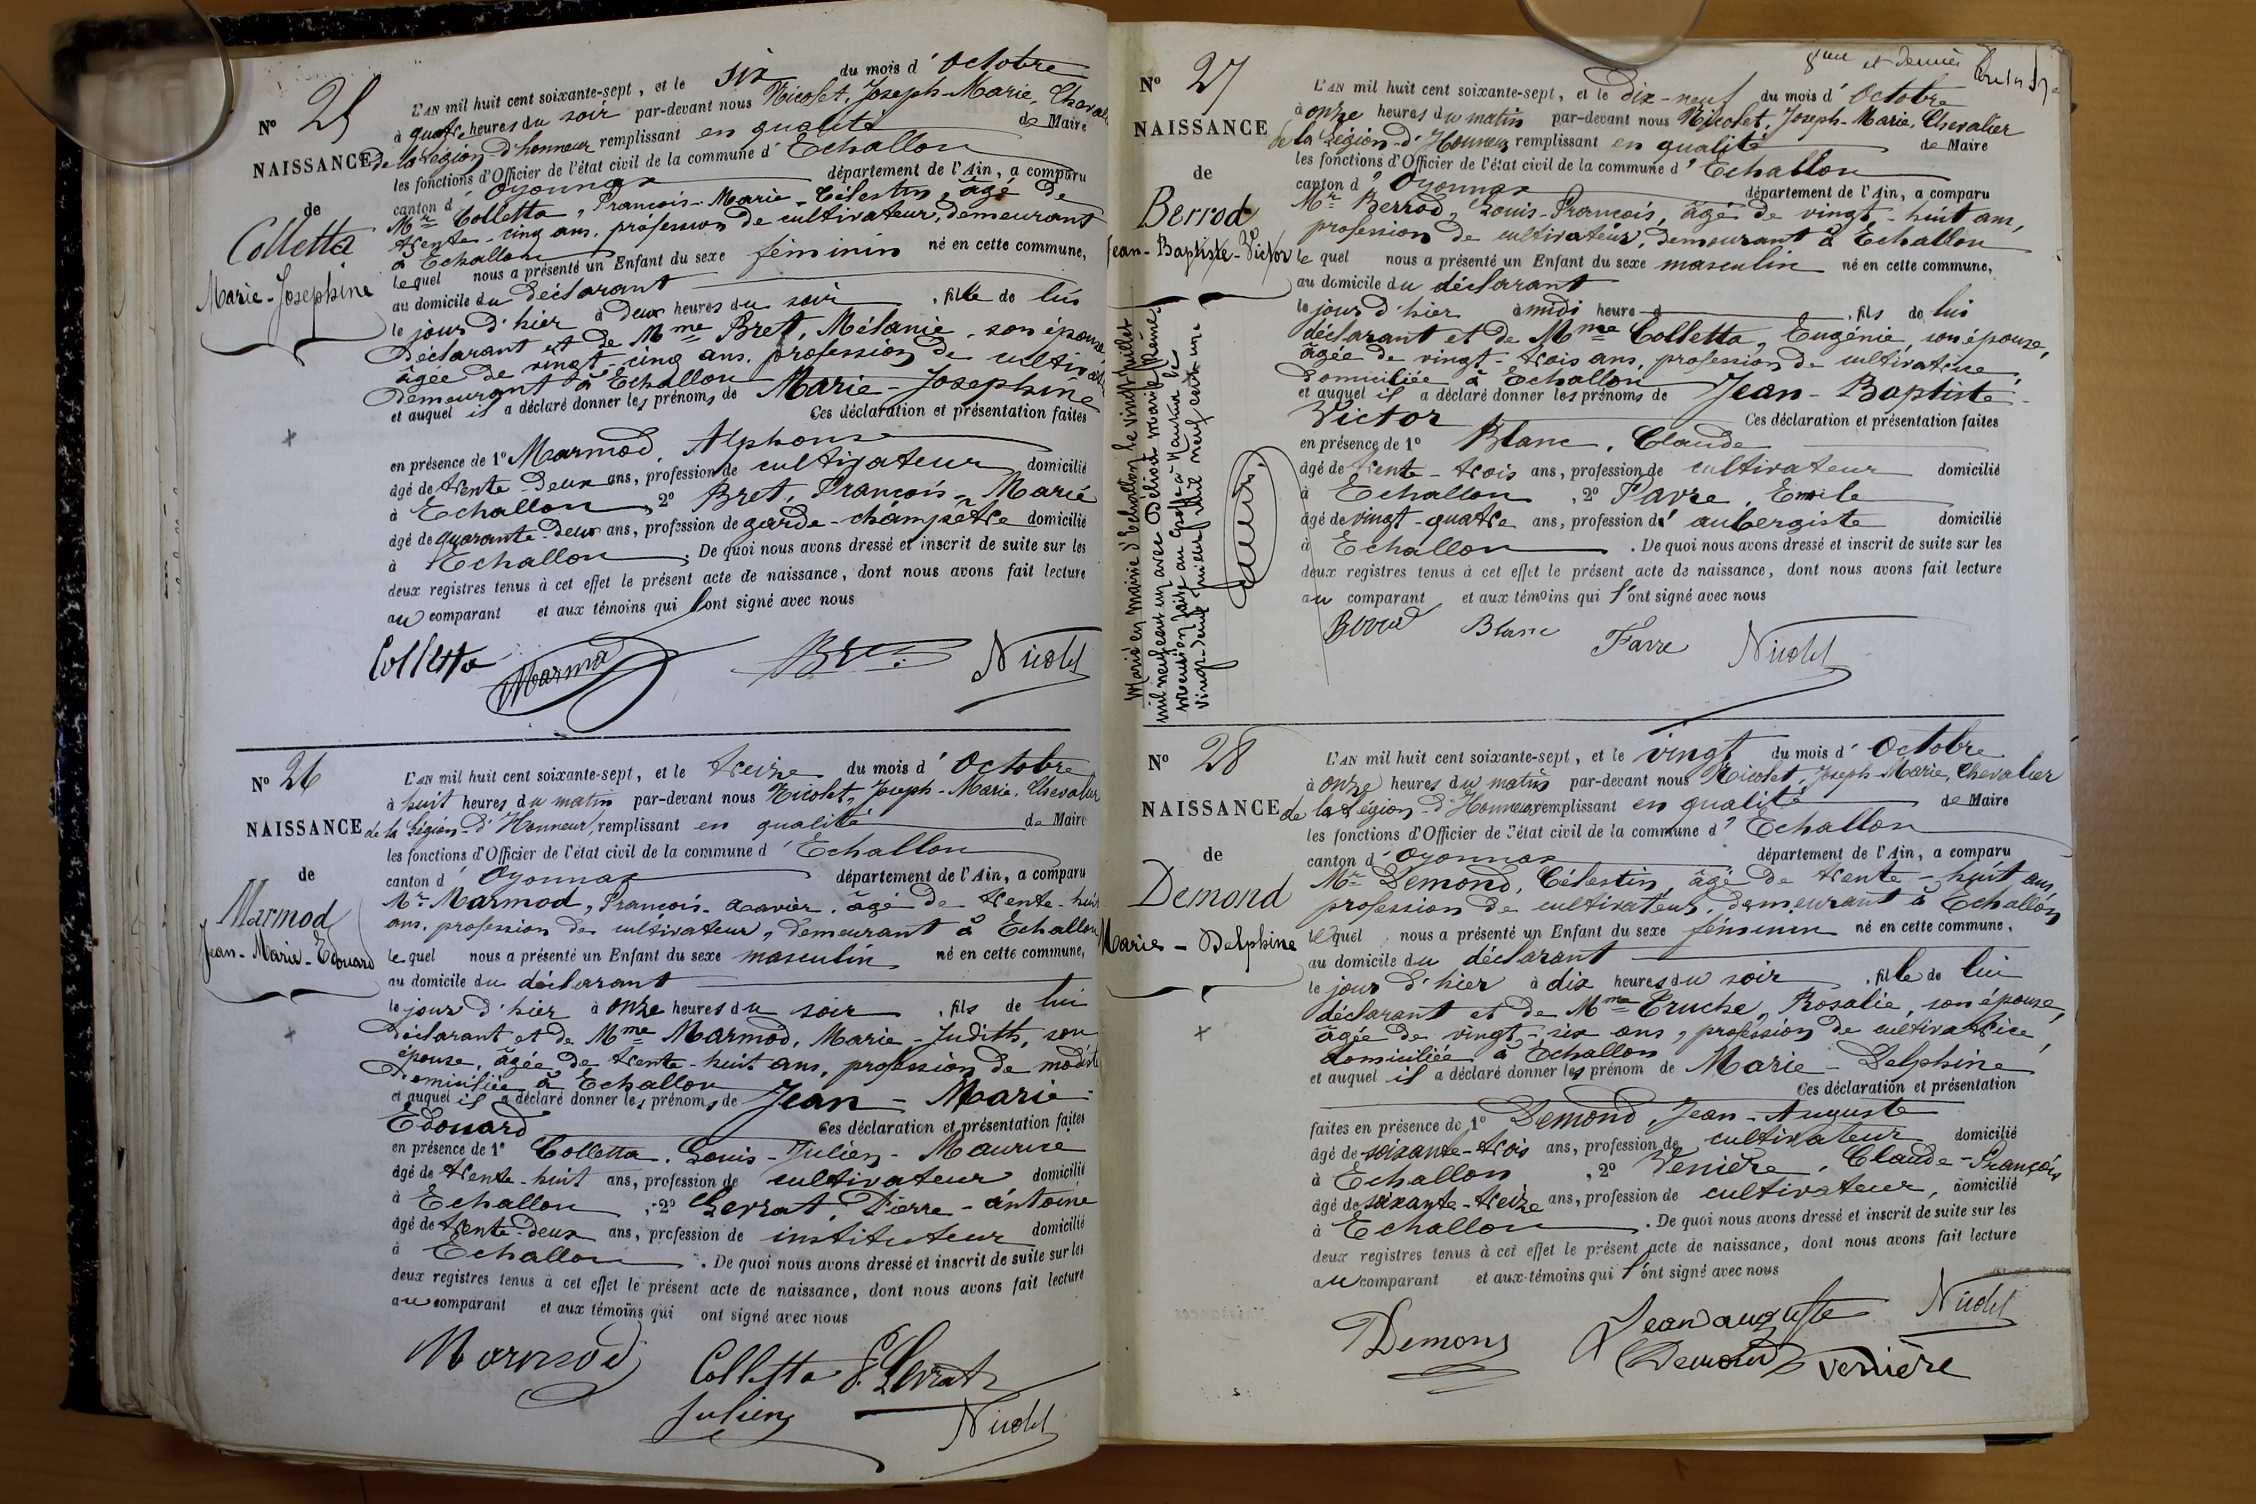 Nº 25
NAISSANCE
de
Colletta
Marie-Josephine
L'AN mil huit cent soixante-sept, et le six du mois d'Octobre
à quatre heures du soir par-devant nous Nicolet, Joseph-Marie, Chevalier
de la Légion-d'honneur remplissant en qualité de Maire
les fonctions d'Officier de l'état civil de la commune d'Echallon
canton d'Oyonnax département de l'Ain, a comparu
Mr Colletta, François-Marie-Célestin, âgé de
trente-cinq ans, profession de cultivateur, demeurant
à Echallon
lequel nous a présenté un Enfant du sexe féminin né en cette commune,
au domicile du déclarant
le jour d'hier à deux heures du soir, fille de lui
déclarant et de Mme Bret, Mélanie, son épouse
âgée de vingt-cinq ans, profession de cultivatrice
demeurant à Echallon
et auquel il a déclaré donner les prénoms de Marie-Josephine
Ces déclaration et présentation faites
en présence de 1º Marmod, Alphonse
âgé de trente deux ans, profession de cultivateur domicilié
à Echallon, 2º Bret, François-Marie
âgé de quarante-deux ans, profession de garde-champêtre domicilié
à Echallon. De quoi nous avons dressé et inscrit de suite sur les
deux registres tenus à cet effet le présent acte de naissance, dont nous avons fait lecture
au comparant et aux témoins qui l'ont signé avec nous
Colletta Marmod Bret Nicolet
Nº 26
NAISSANCE
de
Marmod
Jean-Marie-Edouard
L'AN mil huit cent soixante-sept, et le treize du mois d'Octobre
à huit heures du matin par-devant nous Nicolet, Joseph-Marie, Chevalier
de la Légion-d'Honneur, remplissant en qualité de Maire
les fonctions d'Officier de l'état civil de la commune d'Echallon
canton d'Oyonnax département de l'Ain, a comparu
Mr Marmod, François-Xavier, âgé de trente-huit
ans, profession de cultivateur, demeurant à Echallon
lequel nous a présenté un Enfant du sexe masculin né en cette commune,
au domicile du déclarant
le jour d'hier à onze heures du soir, fils de lui
déclarant et de Mme Marmod, Marie-Judith, son
épouse, âgée de trente-huit ans, profession de modiste
domiciliée à Echallon
et auquel il a déclaré donner les prénoms de Jean-Marie-
Edouard Ces déclaration et présentation faites
en présence de 1º Colletta, Louis-Julien-Maurice
âgé de trente-huit ans, profession de cultivateur domicilié
à Echallon, 2º Levrat, Pierre-antoine
âgé de trente-deux ans, profession de instituteur domicilié
à Echallon. De quoi nous avons dressé et inscrit de suite sur les
deux registres tenus à cet effet le présent acte de naissance, dont nous avons fait lecture
au comparant et aux témoins qui ont signé avec nous
Marmod Colletta P. Levrat
Julien Nicolet
9me et dernier
Nº 27
NAISSANCE
de
Berrod
Jean-Baptiste-Victor
Marié en mairie d'Echallon le vingt juillet
mil neuf cent un avec
L'AN mil huit cent soixante-sept, et le dix-neuf du mois d'Octobre
à onze heures du matin par-devant nous Nicolet, Joseph-Marie, Chevalier
de la Légion-d'Honneur remplissant en qualité de Maire
les fonctions d'Officier de l'état civil de la commune d'Echallon
canton d'Oyonnax département de l'Ain, a comparu
Mr Berrod, Louis-François, âgé de vingt-huit ans,
profession de cultivateur, demeurant à Echallon
lequel nous a présenté un Enfant du sexe masculin né en cette commune,
au domicile du déclarant
le jour d'hier à midi heure d, fils de lui
déclarant et de Mme Colletta, Eugénie, son épouse,
âgée de vingt-trois ans, profession de cultivatrice,
domiciliée à Echallon
et auquel il a déclaré donner les prénoms de Jean-Baptiste-
Victor Ces déclaration et présentation faites
en présence de 1º Blanc, Claude
âgé de trente-trois ans, profession de cultivateur domicilié
à Echallon, 2º Favre, Emile
âgé de vingt-quatre ans, profession d'aubergiste domicilié
à Echallon. De quoi nous avons dressé et inscrit de suite sur les
deux registres tenus à cet effet le présent acte de naissance, dont nous avons fait lecture
au comparant et aux témoins qui l'ont signé avec nous
Berrod Blanc Favre Nicolet
Nº 28
NAISSANCE
de
Demond
Marie-Delphine
L'AN mil huit cent soixante-sept, et le vingt du mois d'Octobre
à onze heures du matin par-devant nous Nicolet, Joseph-Marie, Chevalier
de la Légion-d'Honneur remplissant en qualité de Maire
les fonctions d'Officier de l'état civil de la commune d'Echallon
canton d'Oyonnax département de l'Ain, a comparu
Mr Demond, Célestin, âgé de trente-huit ans,
profession de cultivateur, demeurant à Echallon
lequel nous a présenté un Enfant du sexe féminin né en cette commune,
au domicile du déclarant
le jour d'hier à dix heures du soir, fille de lui
déclarant et de Mme Truche, Rosalie, son épouse,
âgée de vingt-six ans, profession de cultivatrice,
domiciliée à Echallon
et auquel il a déclaré donner les prénom de Marie-Delphine
Ces déclaration et présentation
faites en présence de 1º Demond, Jean-Auguste
âgé de soixante-trois ans, profession de cultivateur domicilié
à Echallon, 2º Venière, Claude-François
âgé de soixante-treize ans, profession de cultivateur, domicilié
à Echallon. De quoi nous avons dressé et inscrit de suite sur les
deux registres tenus à cet effet le présent acte de naissance, dont nous avons fait lecture
au comparant et aux témoins qui l'ont signé avec nous
Demond Jean auguste Nicolet
Demond Venière